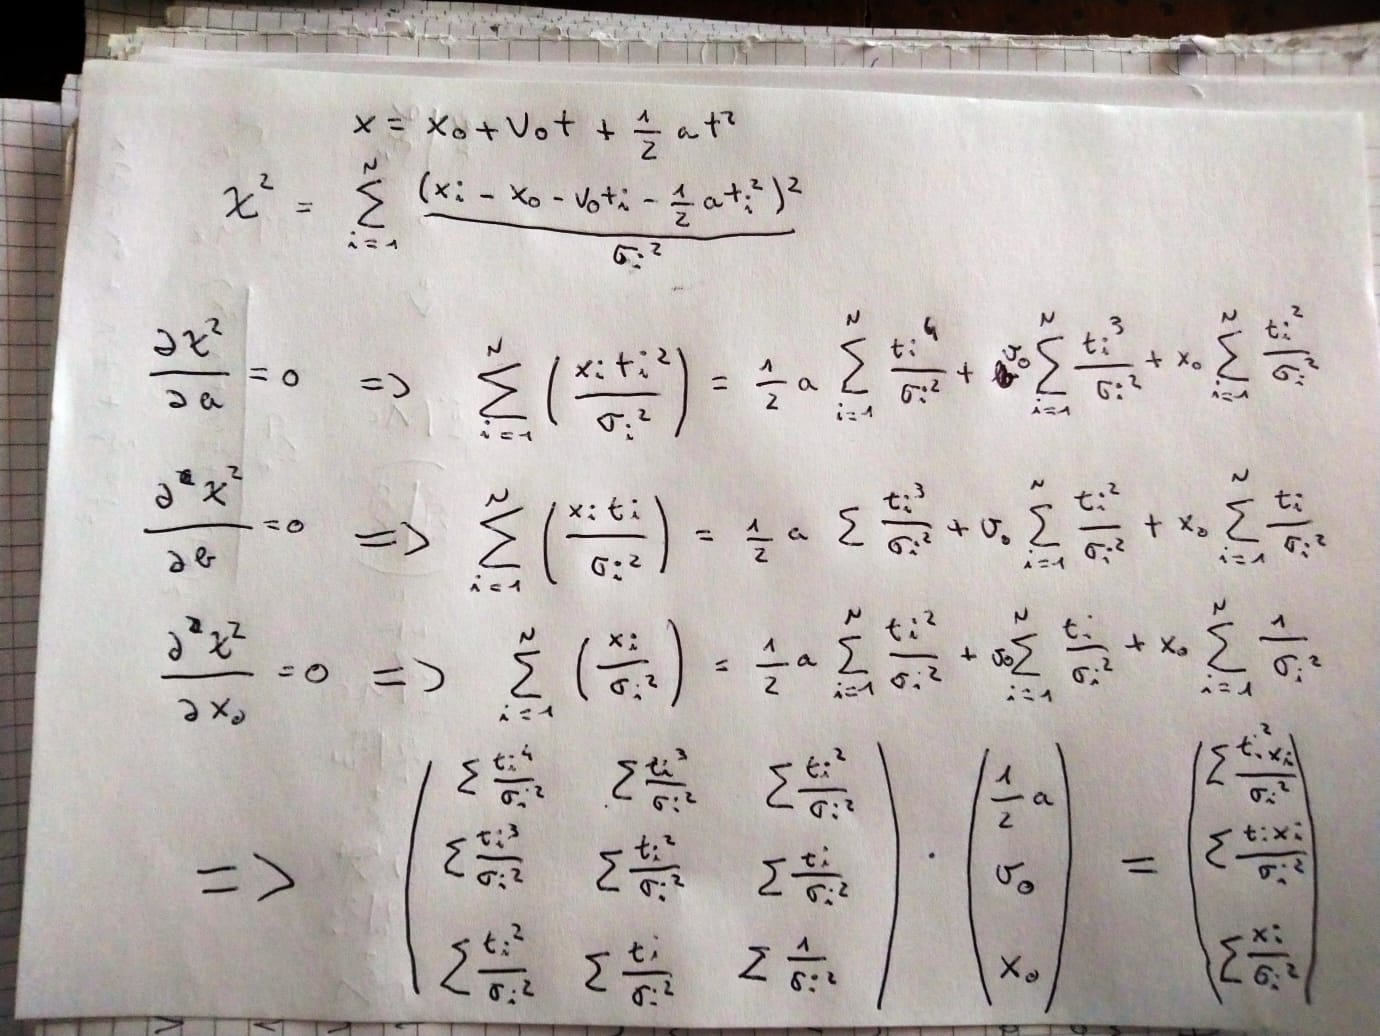 x = x₀ + v₀t + 1/2 at²
χ² = Σ_{i=1}^{N} (xi - x₀ - v₀ti - 1/2 ati²)² / σi²
∂χ²/∂a = 0 => Σ_{i=1}^{N} (xi ti² / σi²) = 1/2 a Σ_{i=1}^{N} ti⁴/σi² + v₀ Σ_{i=1}^{N} ti³/σi² + x₀ Σ_{i=1}^{N} ti²/σi²
∂χ²/∂b = 0 => Σ_{i=1}^{N} (xi ti / σi²) = 1/2 a Σ ti³/σi² + v₀ Σ_{i=1}^{N} ti²/σi² + x₀ Σ_{i=1}^{N} ti/σi²
∂χ²/∂x₀ = 0 => Σ_{i=1}^{N} (xi / σi²) = 1/2 a Σ_{i=1}^{N} ti²/σi² + v₀ Σ_{i=1}^{N} ti/σi² + x₀ Σ_{i=1}^{N} 1/σi²
=> ( Σ ti⁴/σi² Σ ti³/σi² Σ ti²/σi² ) · ( 1/2 a ) = ( Σ ti² xi/σi² )
( Σ ti³/σi² Σ ti²/σi² Σ ti/σi² ) ( v₀ ) ( Σ ti xi/σi² )
( Σ ti²/σi² Σ ti/σi² Σ 1/σi² ) ( x₀ ) ( Σ xi/σi² )